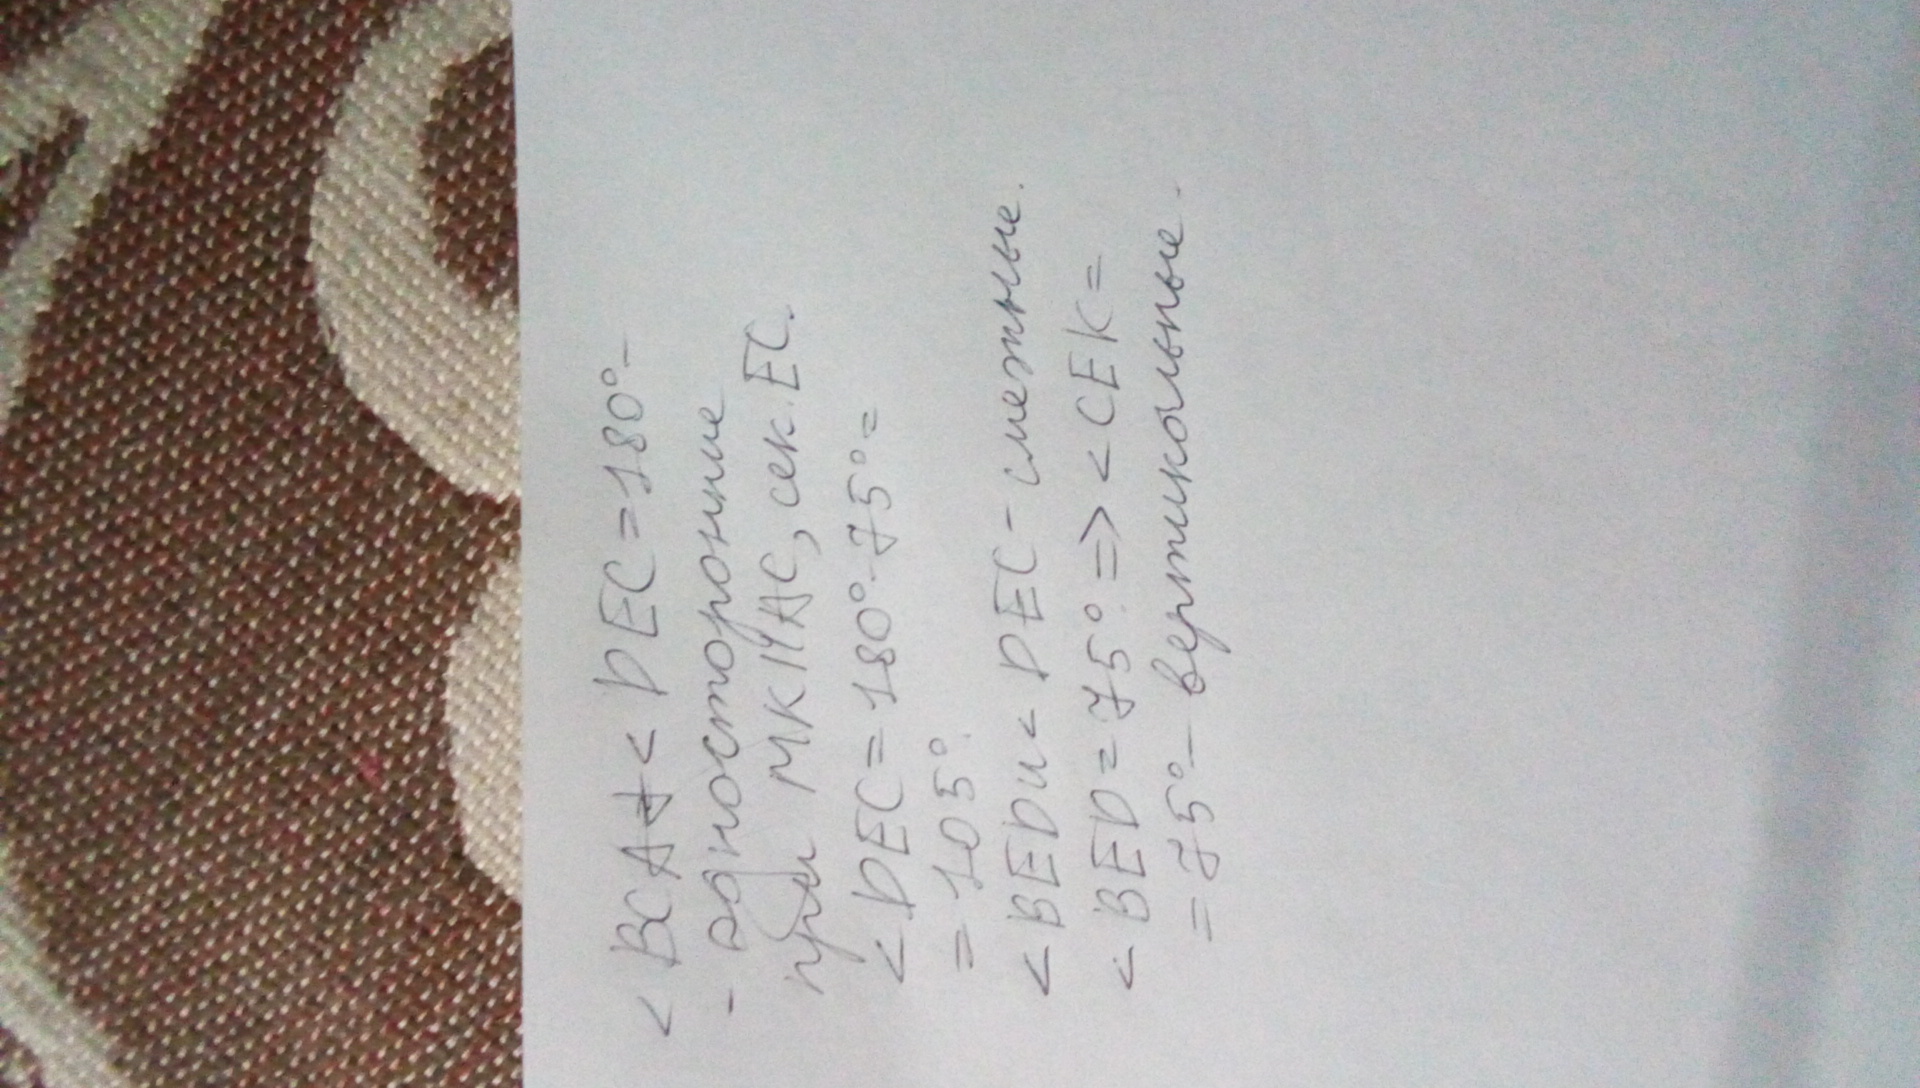 < BCA + < DEC = 180° -
- односторонние
при MK || AC, сек. EC.
< DEC = 180° - 75° =
= 105°.
< BED и < DEC - смежные.
< BED = 75° => < CEK =
= 75° - вертикальные.